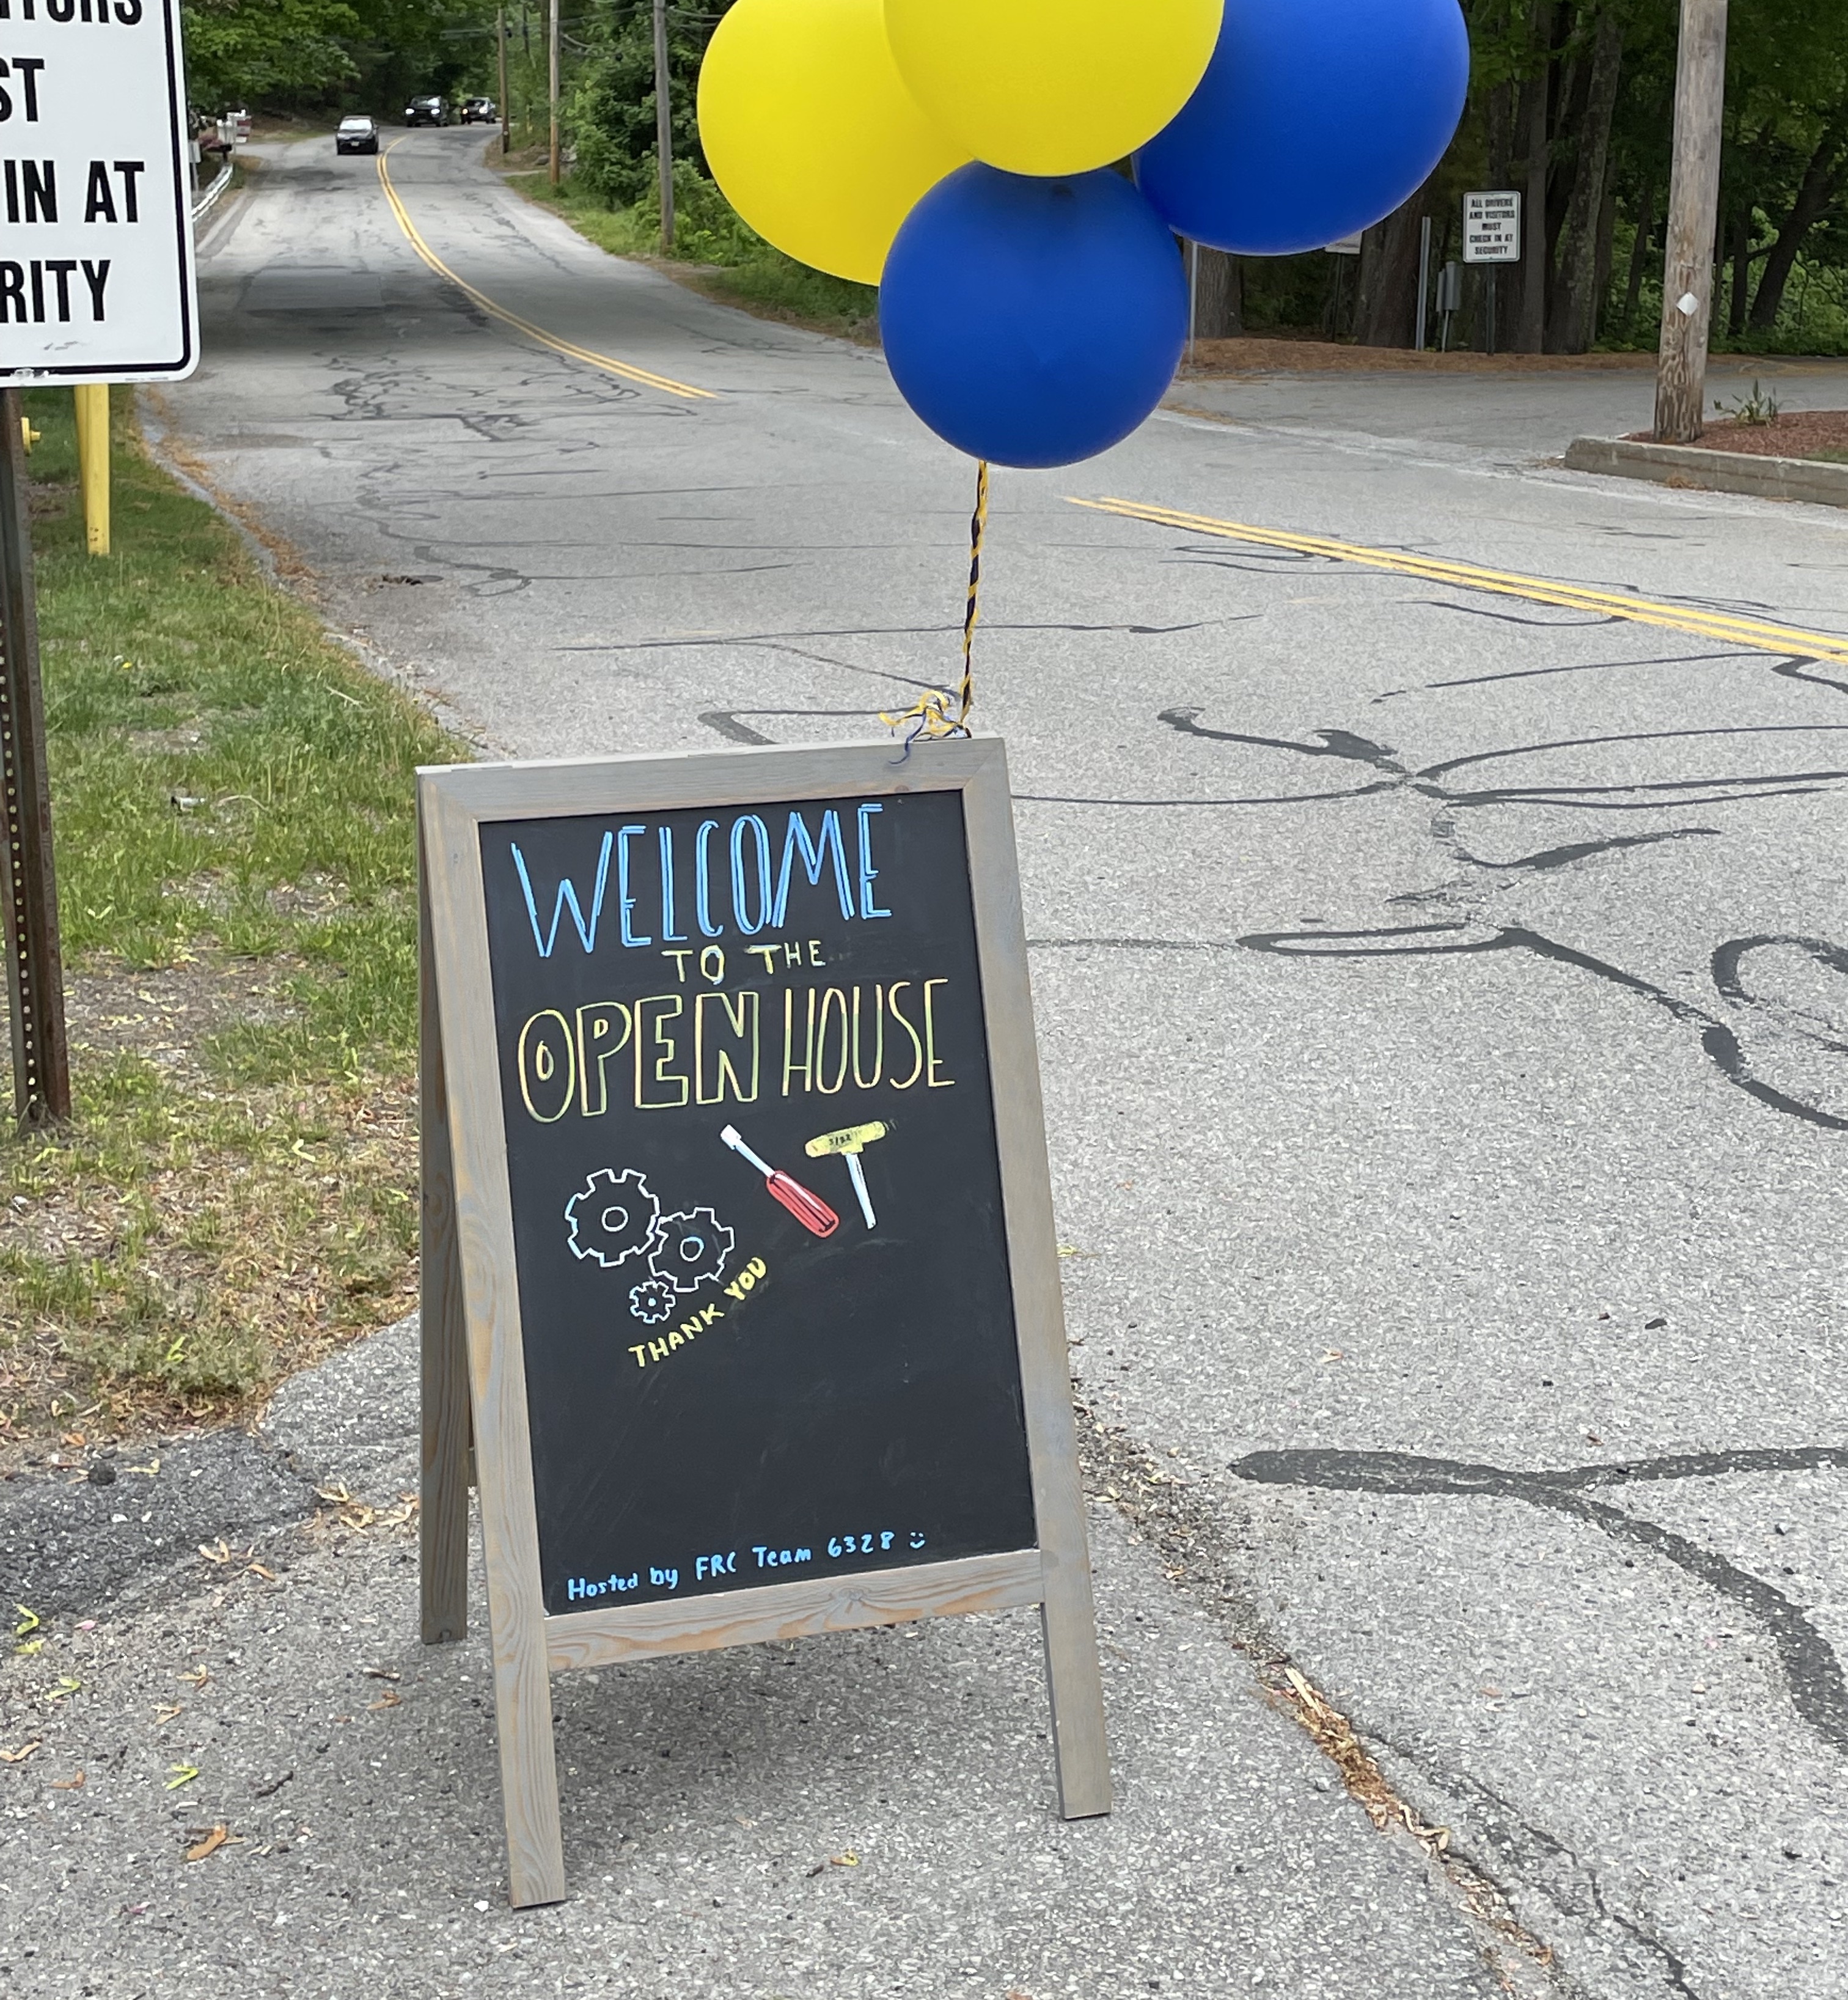 ST
IN AT
ALL DRIVERS
AND VISITORS
MUST
CHECK IN AT
SECURITY
WELCOME
TO THE
OPEN HOUSE
THANK YOU
Hosted by FRC Team 6328 :)